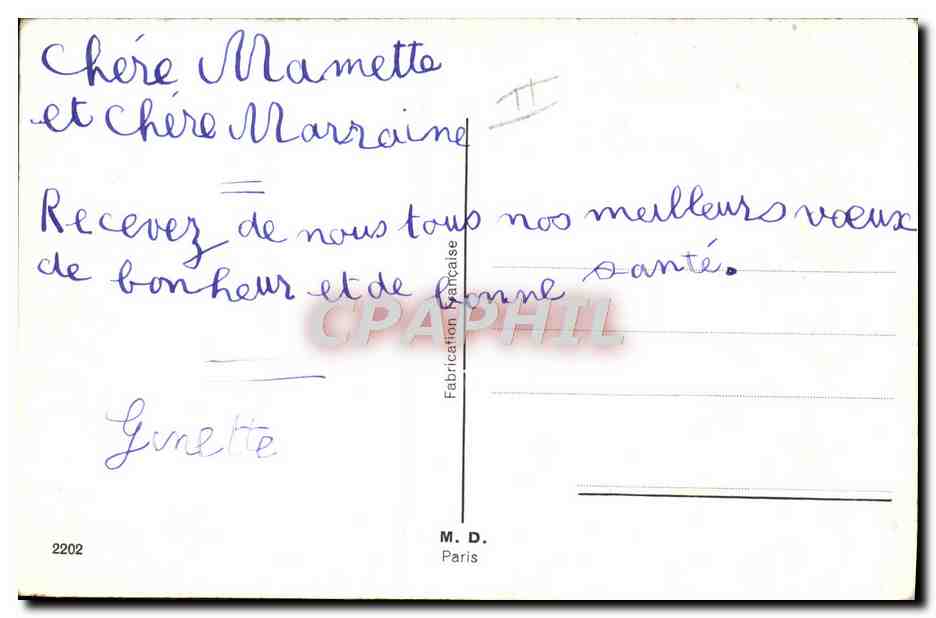 Chére Mamette
et Chére Marraine
TT
Recevez de nous tous nos meilleurs vœux
de bonheur et de bonne santé.
CPAPHIL
Fabrication Française
Ginette
2202
M. D.
Paris